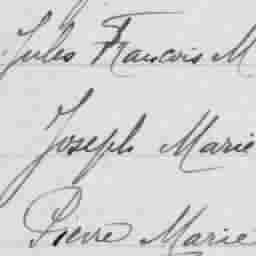 Jules François M
Joseph Marie
Pierre Marie